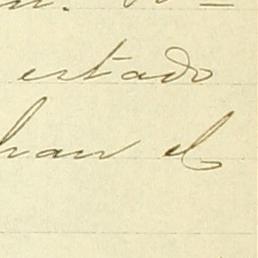 estado
han el